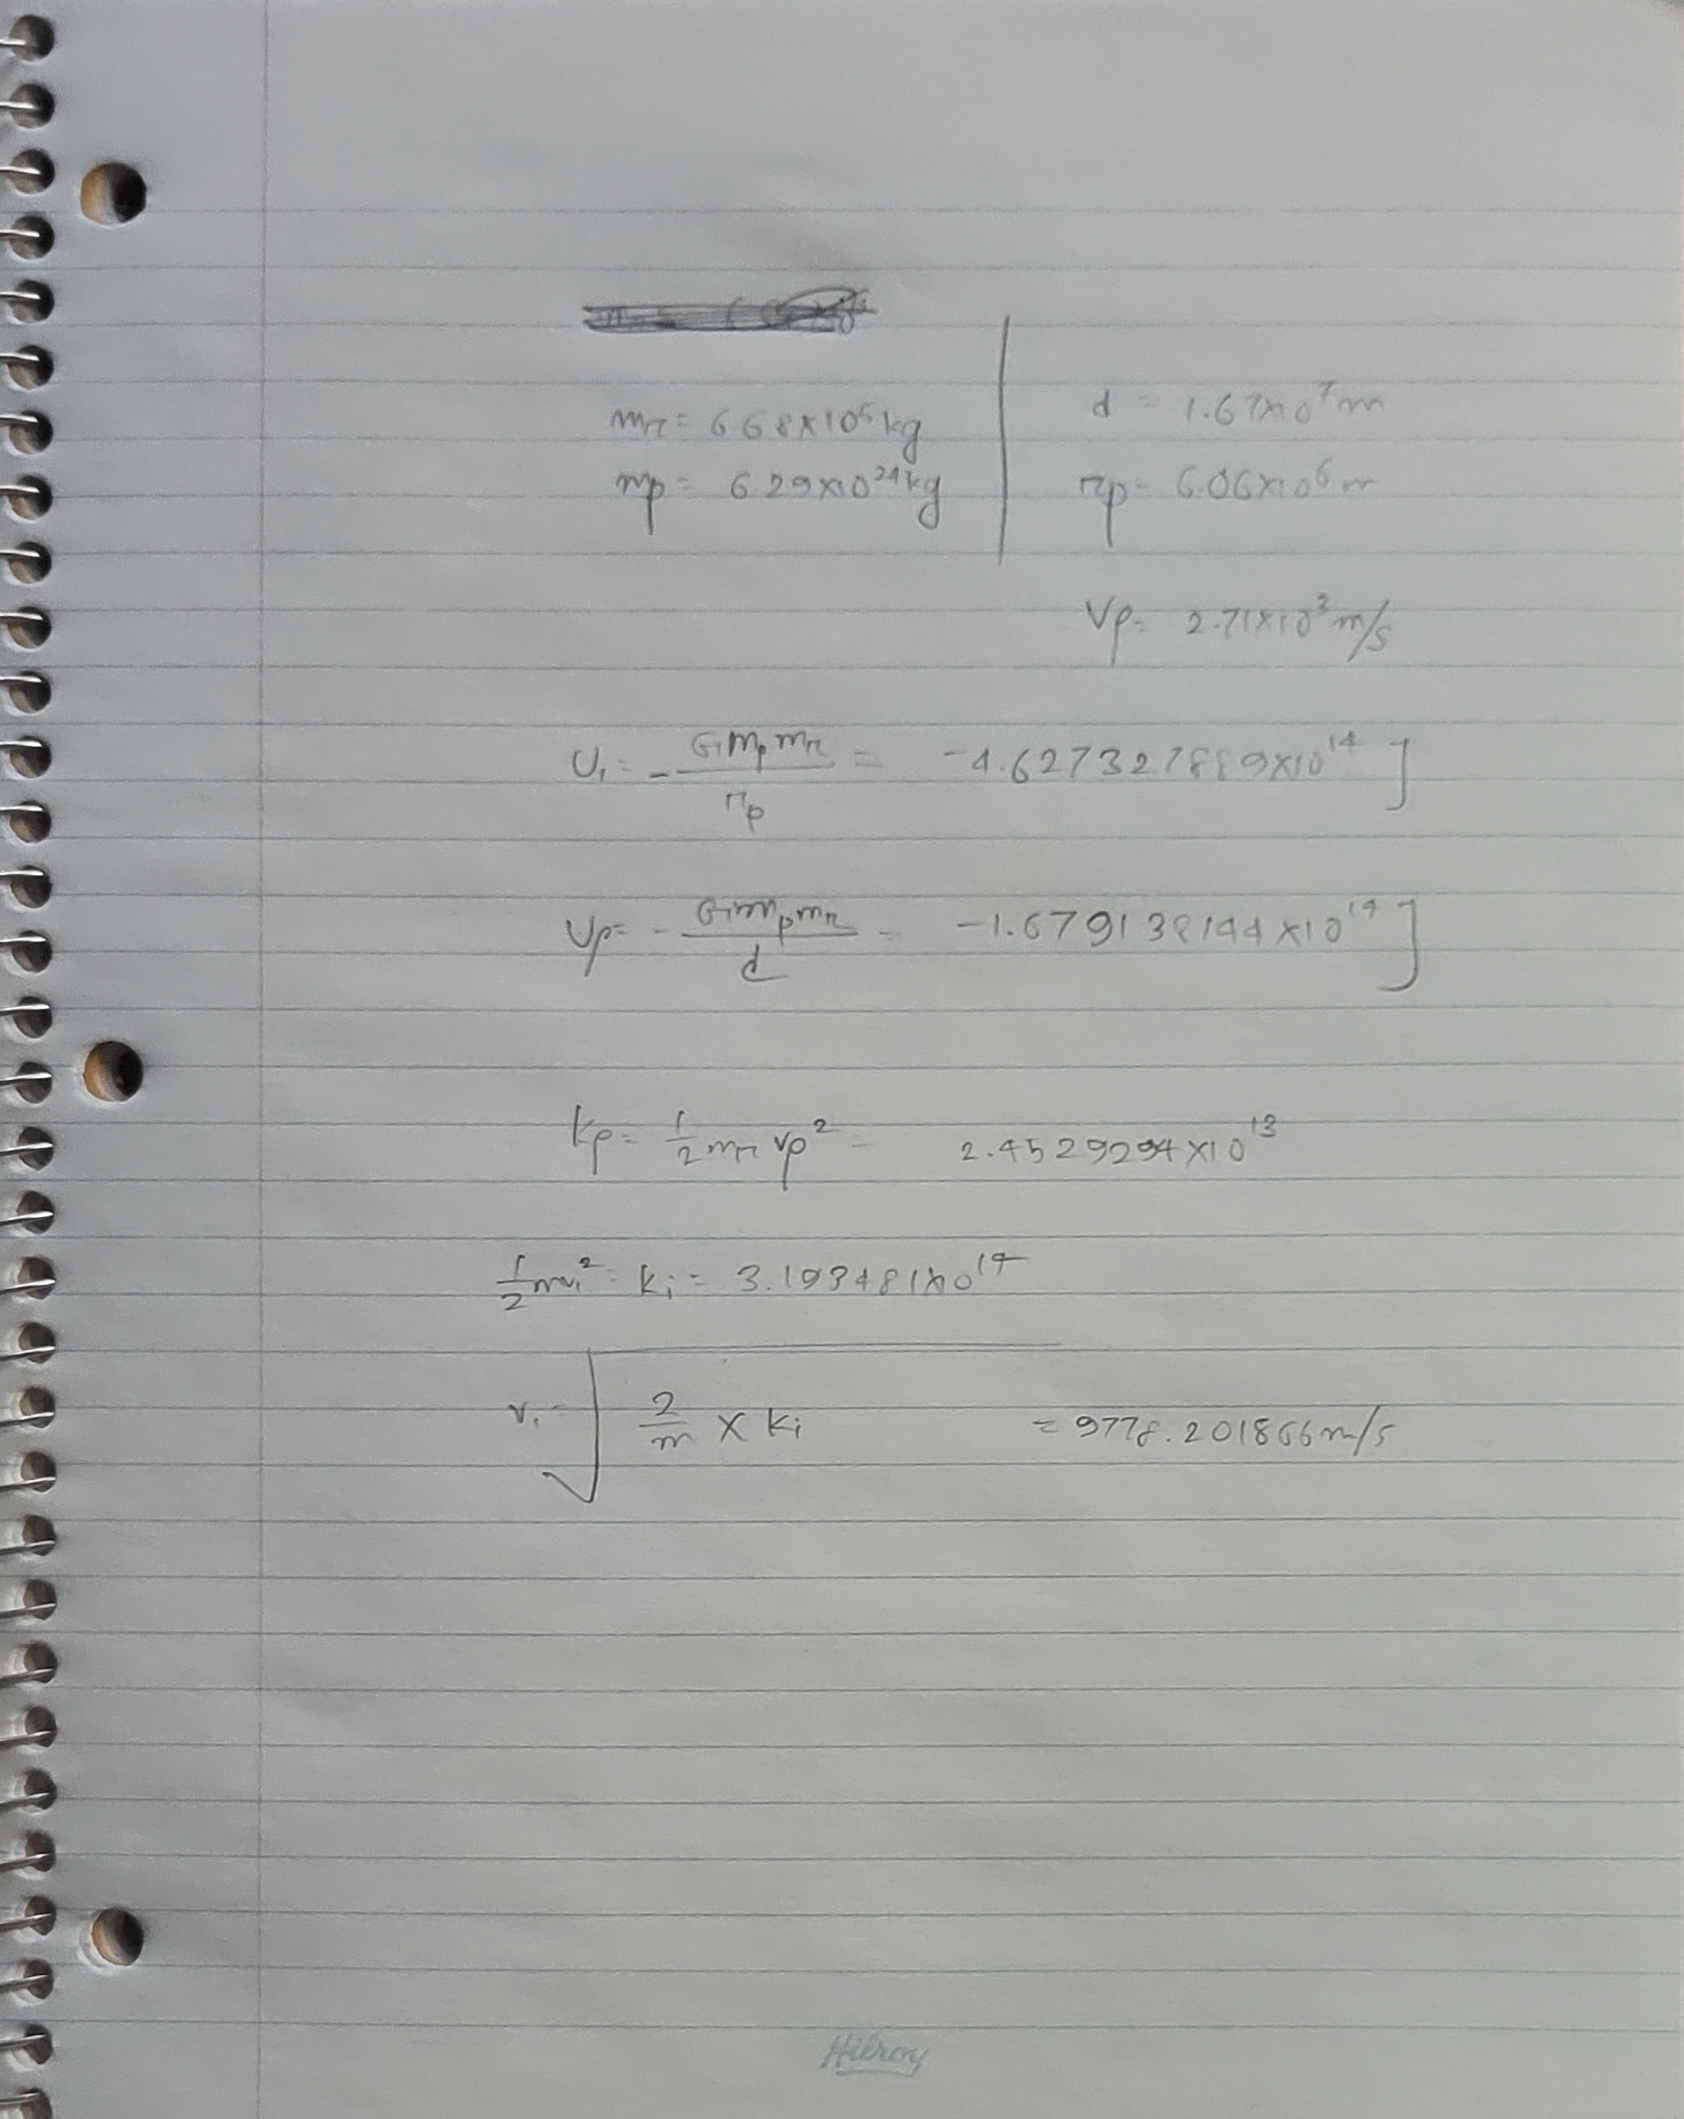 mr = 6.68×10⁶ kg
mp = 6.29×10²⁴ kg
d = 1.67×10⁷ m
rp = 6.06×10⁶ m
Vp = 2.71×10³ m/s
U₁ = - G mp mr / rp = -4.627327889×10¹⁴ J
Up = - G mp mr / d = -1.679138144×10¹⁴ J
Kp = 1/2 mr vp² = 2.4529294×10¹³
1/2 mvi² = Ki = 3.193481×10¹⁴
vi = √(2/m × Ki) = 9778.201866 m/s
Hilroy